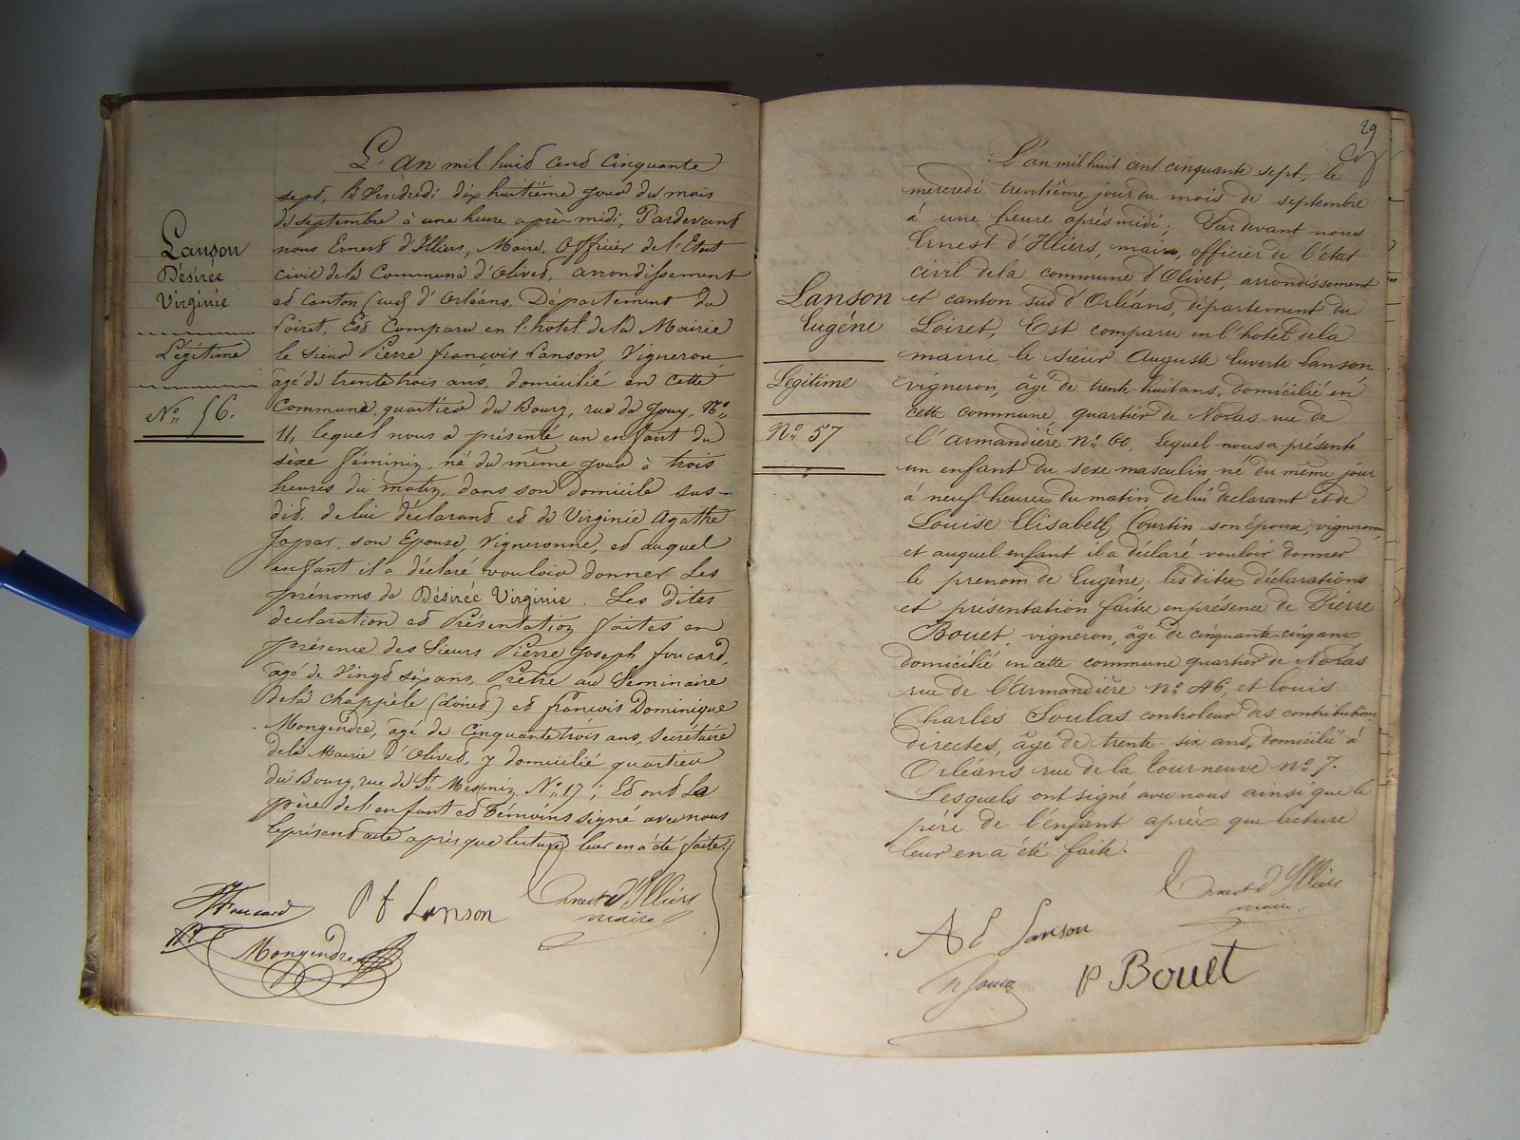 Lanson
Désirée
Virginie
Légitime
No. 56.
L'an mil huit cent cinquante
sept, le Vendredi dix huitième jour du mois
de septembre à une heure après-midi, Pardevant
nous Ernest d'Illiers, Maire, Officier de l'Etat
civil de la Commune d'Olivet, arrondissement
et Canton sud d'Orléans, Département du
Loiret, Est Comparu en l'hotel de la Mairie
le Sieur Pierre françois Lanson, Vigneron
âgé de trente trois ans, domicilié en cette
Commune, quartier du Bourg, rue de Gouy, No.
11, lequel nous a présenté un enfant du
sèxe féminin, né du même jour à trois
heures du matin, dans son domicile sus-
dit, de lui déclarant et de Virginie Agathe
son Epouse, Vigneronne, et auquel
enfant il a déclaré vouloir donner Les
prénoms de Désirée Virginie. Les dites
declaration et Présentation faites en
présence des Sieurs Pierre Joseph foucard,
âgé de Vingt sèpt ans, Prêtre au Séminaire
de la Chappèle (Loiret) et françois Dominique
Mongendre, âgé de Cinquante trois ans, Secrétaire
de la Mairie d'Olivet, y domicilié quartier
du Bourg, rue de St. Mesmin, No. 17; Et ont Le
père de l'enfant et Témoins signé avec nous
le présent acte après que lecture leur en a été faite.
Foucard
P f Lanson
Ernest d'Illiers
maire
Mongendre
29
Lanson
Eugène
Légitime
No. 57
L'an mil huit cent cinquante sept, le
mercredi trentième jour du mois de septembre
à une heure après midi; Pardevant nous
Ernest d'Illiers, maire, officier de l'état
civil de la commune d'Olivet, arrondissement
et canton sud d'Orléans, département du
Loiret, Est comparu en l'hotel de la
mairie le sieur Auguste Lanson
vigneron, âgé de trente huit ans, domicilié en
cette commune, quartier de Noras rue de
l'armandière No. 60, lequel nous a présenté
un enfant du sexe masculin né du même jour
à neuf heures du matin de lui déclarant et de
Louise Elisabeth Courtin son épouse, vigneronne,
et auquel enfant il a déclaré vouloir donner
le prenom de Eugène, les dites déclarations
et présentation faites en présence de Pierre
Bouet, vigneron, âgé de cinquante cinq ans
domicilié en cette commune quartier de Noras
rue de l'Armandière No. 46, et Louis
Charles Soulas controleur des contributions
directes, âgé de trente six ans, domicilié à
Orléans rue de la tour neuve No. 7.
Lesquels ont signé avec nous ainsi que le
père de l'enfant après que lecture
leur en a été faite.
Ernest d'Illiers
maire
A E Lanson
P Bouet